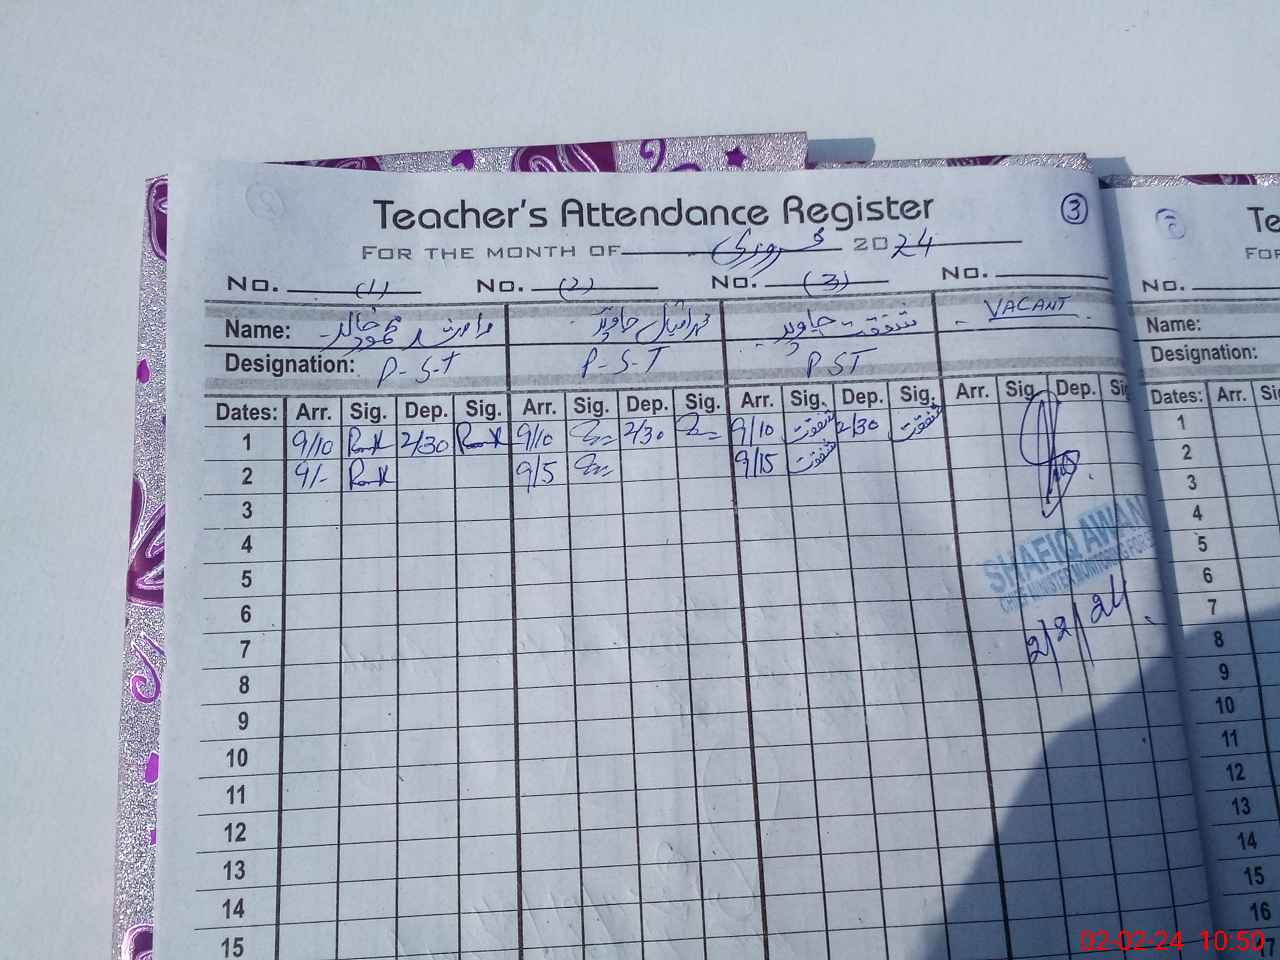 Teacher's Attendance Register
3
FOR THE MONTH OF فروری 2024
No. (1) No. (2) No. (3) No.
Name: جاوید شفقت جاوید VACANT
Designation: P-S-T P-S-T PST
Dates: Arr. Sig. Dep. Sig. Arr. Sig. Dep. Sig. Arr. Sig. Dep. Sig. Arr. Sig. Dep. Sig
1 9/10 2/30 9/10 2/30 9/10 شفقت 2/30 شفقت
2 9/- 9/5 9/15 شفقت
3
4
5
6
7
8
9
10
11
12
13
14
15
SHAFIQ AWAN
CHIEF MINISTER MONITORING FOR
2/2/24
Te
FOR
No.
Name:
Designation:
Dates: Arr. Si
1
2
3
4
5
6
7
8
9
10
11
12
13
14
15
16
17
02-02-24 10:50